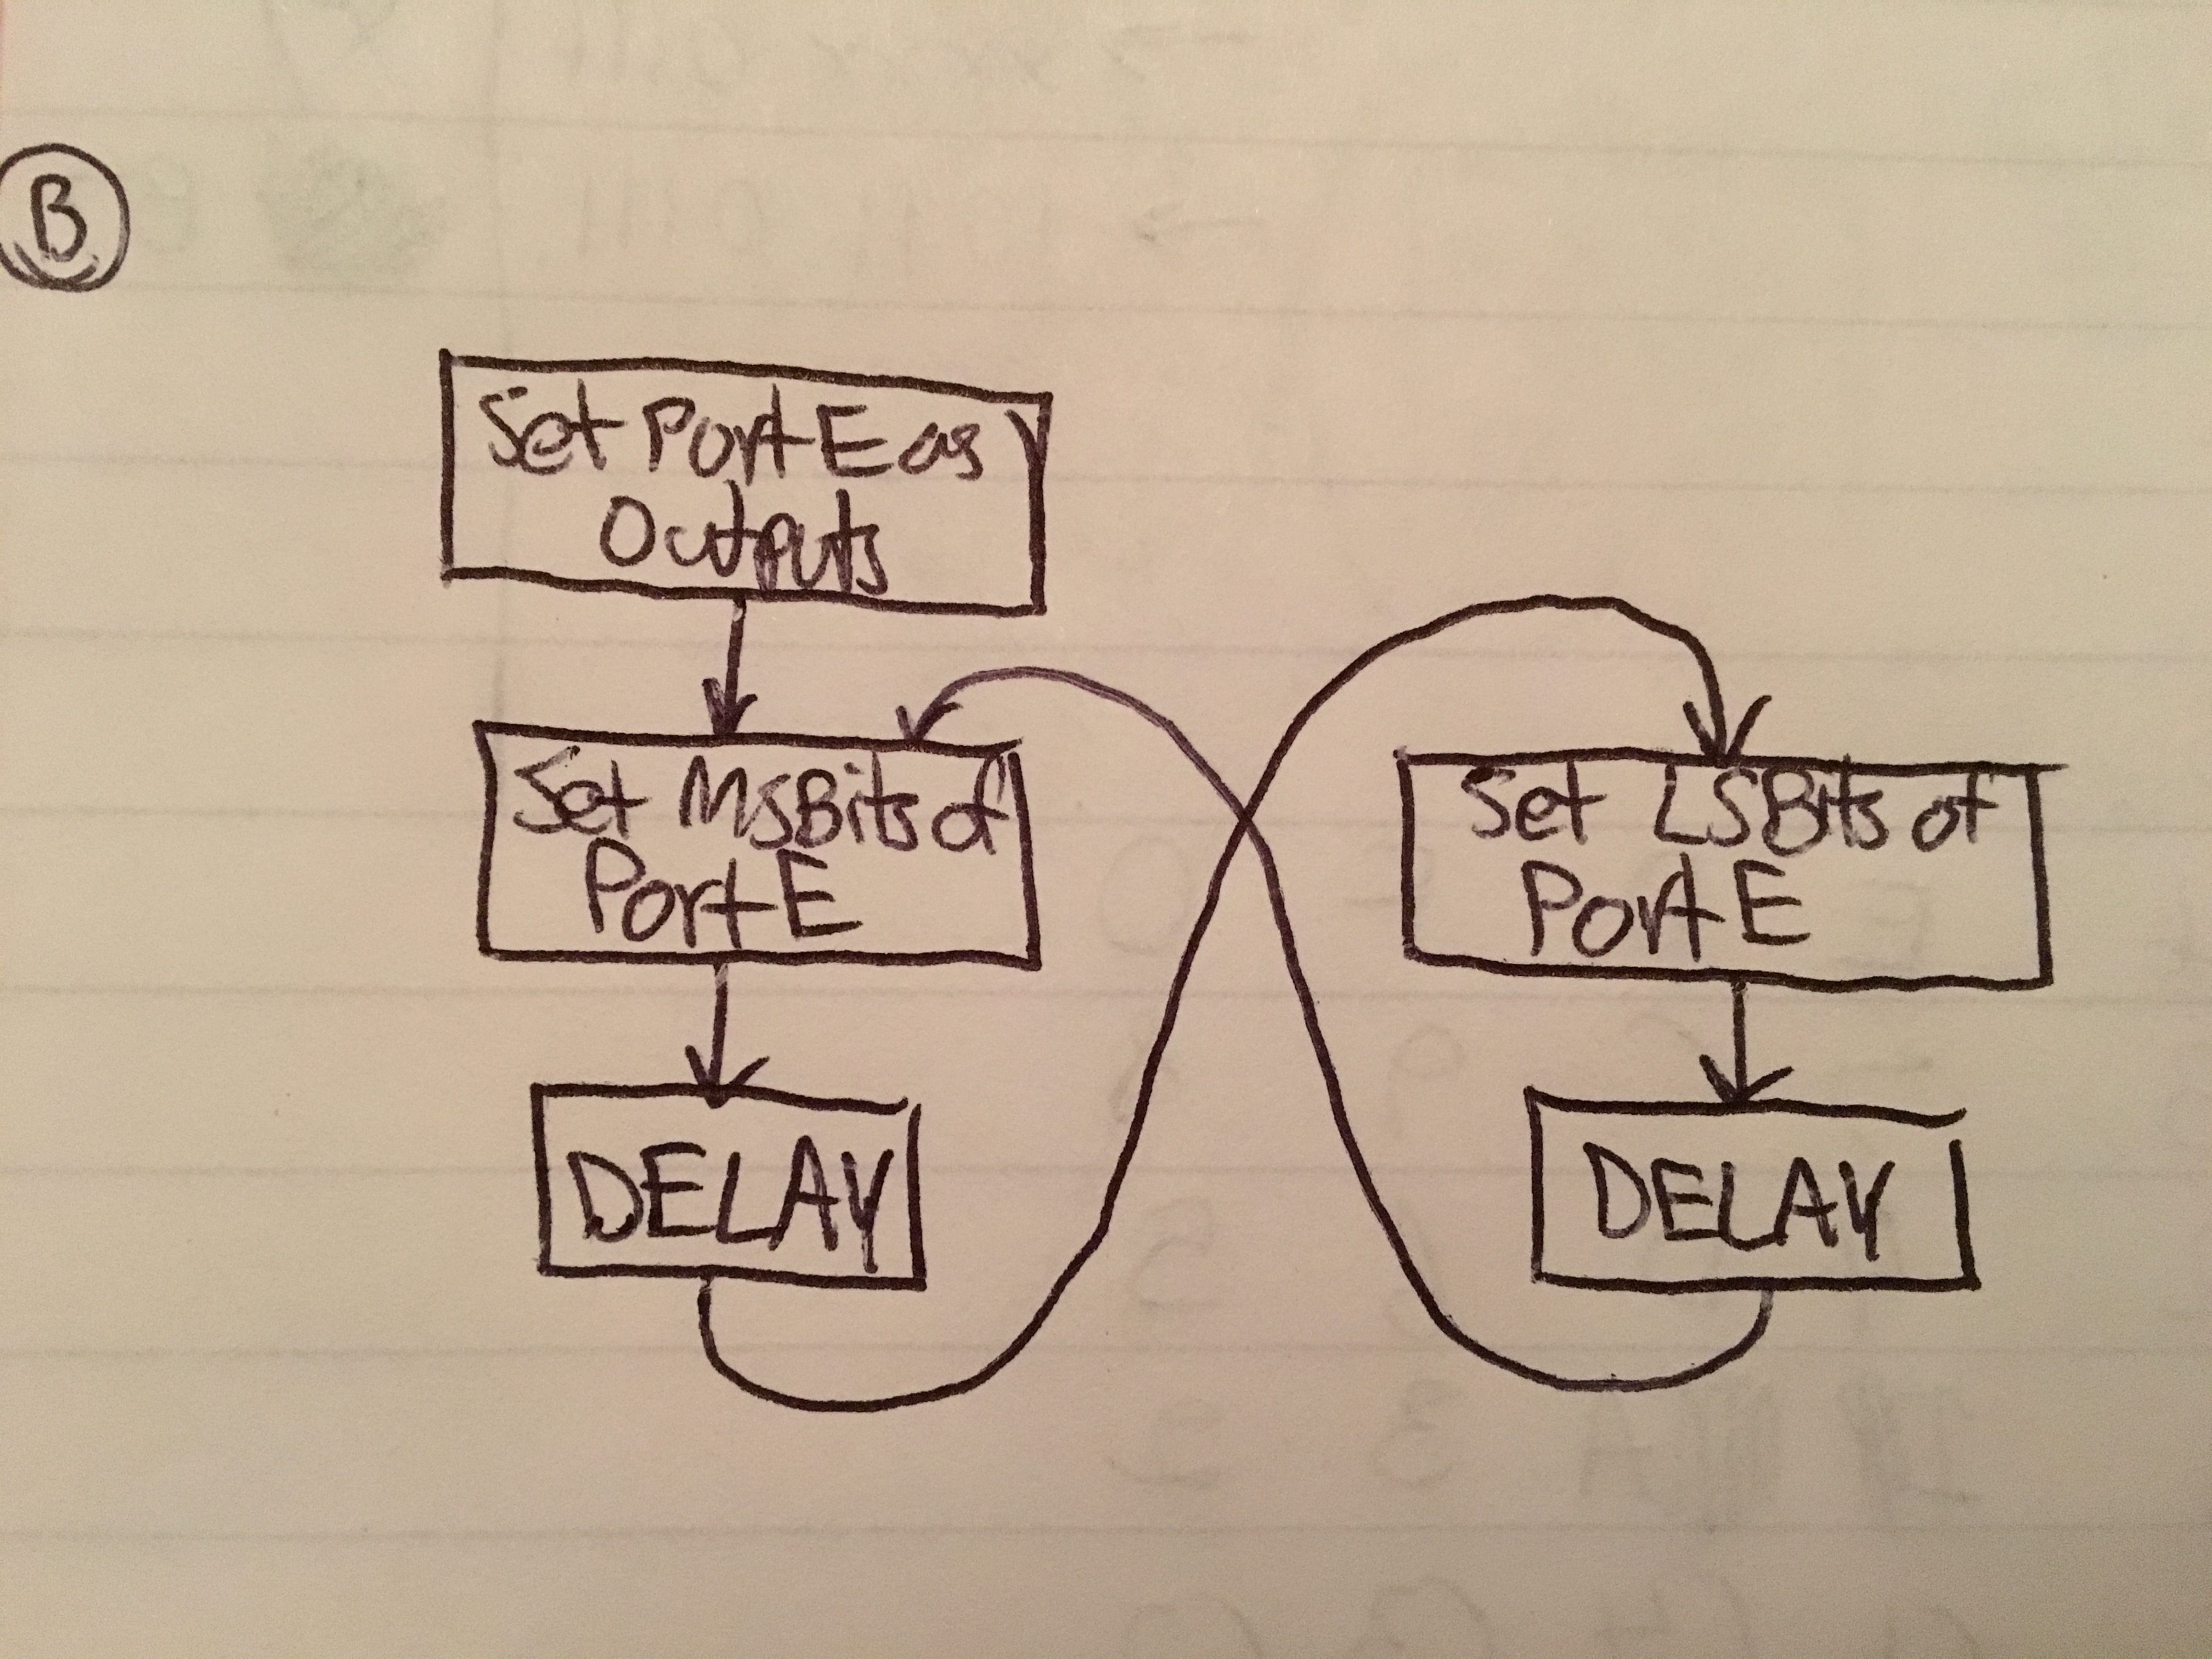 B
Set Port E as
Outputs
Set MSBits of
Port E
DELAY
Set LSBits of
Port E
DELAY